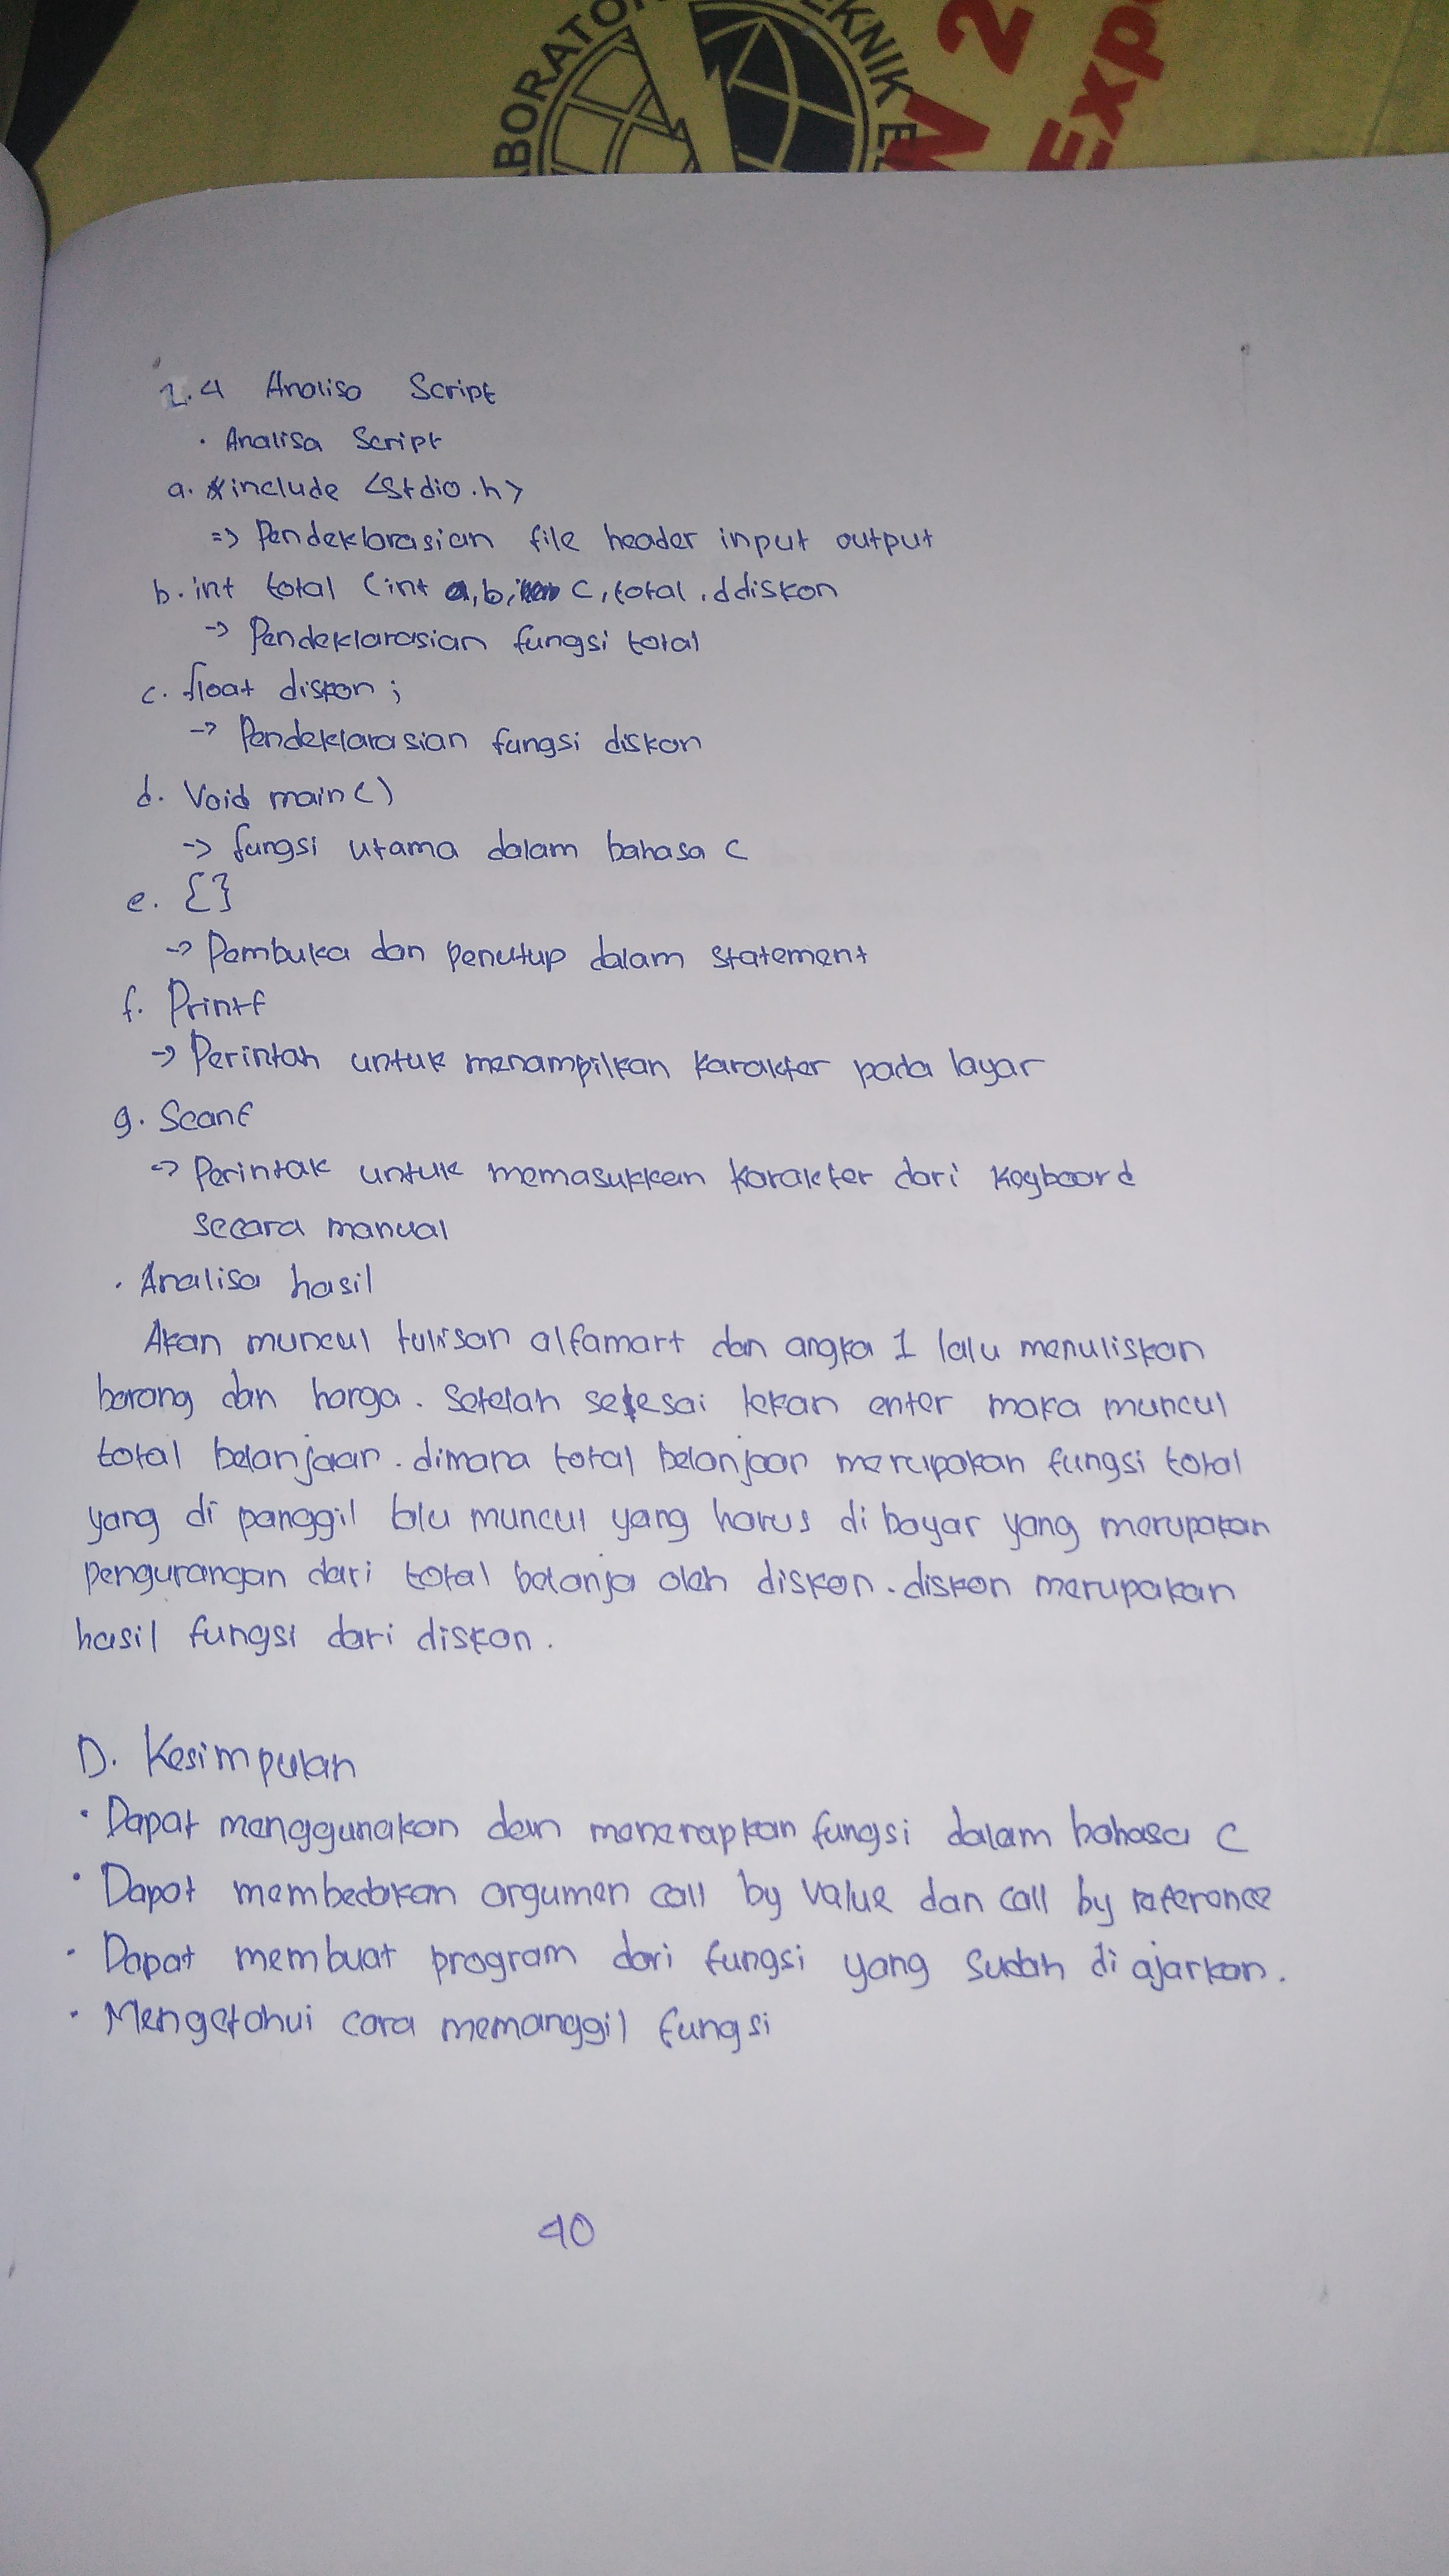 BORATO
EKNIK E
N 2
Exp
2.4 Analisa Script
· Analisa Script
a. #include <stdio.h>
=> Pendeklarasian file header input output
b. int total (int a, b, c, total, ddiskon
-> Pendeklarasian fungsi total
c. float diskon ;
-> Pendeklarasian fungsi diskon
d. Void main ()
-> fungsi utama dalam bahasa C
e. {}
-> Pembuka dan penutup dalam statement
f. Printf
-> Perintah untuk menampilkan karakter pada layar
g. Scanf
-> Perintak untuk memasukkan karakter dari keyboard
secara manual
· Analisa hasil
Akan muncul tulisan alfamart dan angka 1 lalu menuliskan
barang dan harga. Setelah selesai tekan enter maka muncul
total belanjaan. dimana total belanjaan merupakan fungsi total
yang di panggil lalu muncul yang harus di bayar yang merupakan
pengurangan dari total belanja oleh diskon. diskon merupakan
hasil fungsi dari diskon.
D. Kesimpulan
· Dapat menggunakan dan menerapkan fungsi dalam bahasa C
· Dapat membedakan argumen call by value dan call by reference
· Dapat membuat program dari fungsi yang sudah di ajarkan.
· Mengetahui cara memanggil fungsi
40